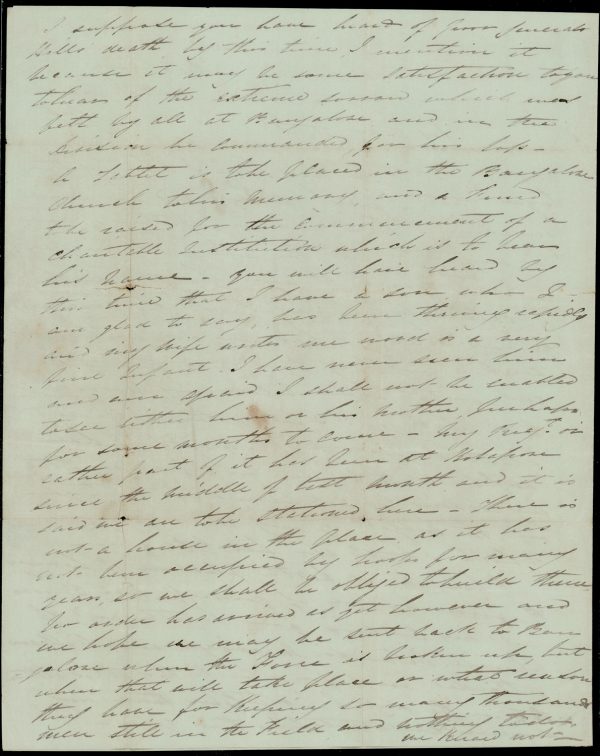 I suppose you have heard of poor General
Hills death by this time, I mention it
because it may be some satisfaction to you
to hear of the extreme sorrow which was
felt by all at Bangalore and in the
Division he commanded for his loss –
A Tablet is to be placed in the Bangalore
Church to his memory, and a Fund
to be raised for the commencement of a
charitable Institution which is to bear
his name – You will have heard by
this time that I have a son who I
am glad to say, has been thriving rapidly
and my wife writes me word is a very
fine Infant. I have never seen him
and am afraid I shall not be enabled
to see either him or his mother, perhaps
for some months to come – My Regt. or
rather part of it has been at
since the middle of last month and it is
said we are to be stationed here – There is
not a house in the place as it has
not been occupied by troops for many
years, so we shall be obliged to build them
No order has arrived as yet however and
we hope we may be sent back to Ban
galore when the Force is broken up, but
when that will take place or what reason
they have for keeping so many thousand
men still in the Field and nothing to do,
we know not –